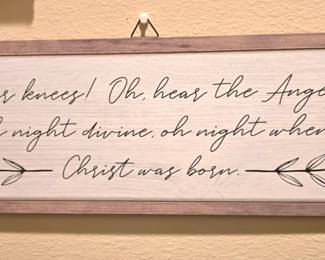 r knees! Oh, hear the Ange
night divine, oh night when
Christ was born.